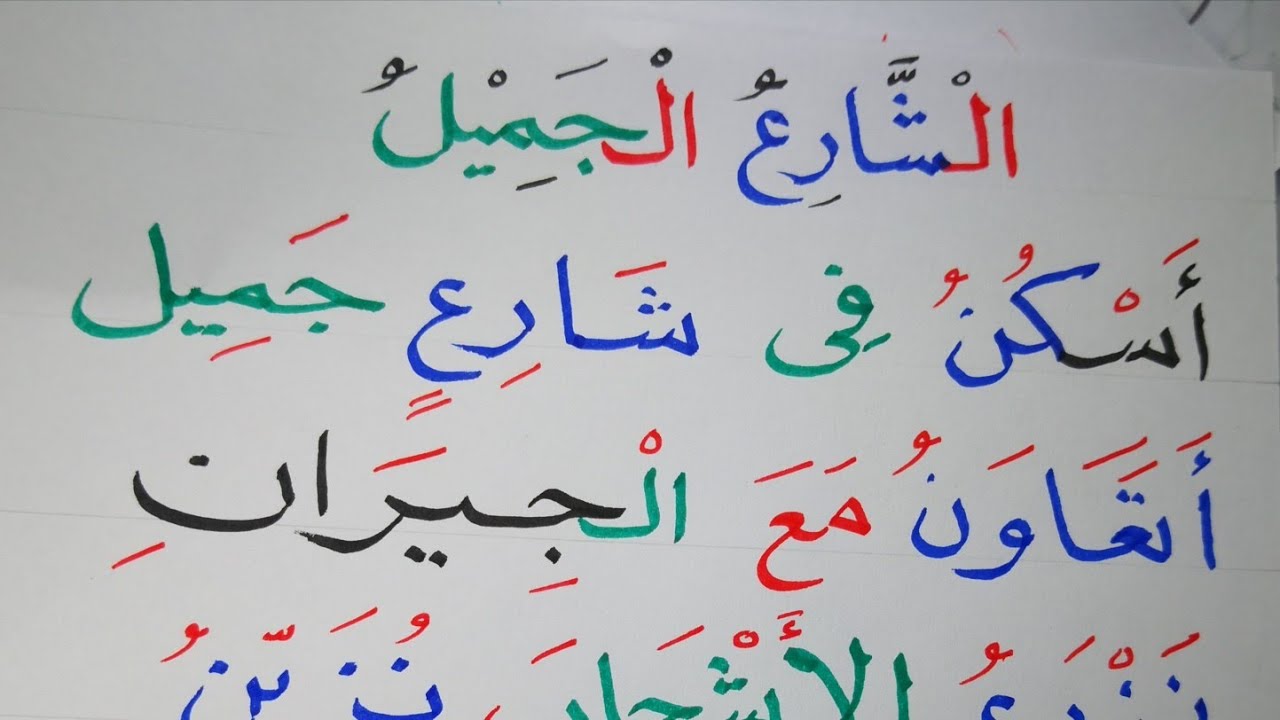 الْشَّارِعُ الْجَمِيْلُ
أَسْكُنُ فِى شَارِعٍ جَمِيل
أَتَعَاوَنُ مَعَ الْجِيَرَانِ
نَزْرَعُ الأَشْجَارَ نُزَيّنُ